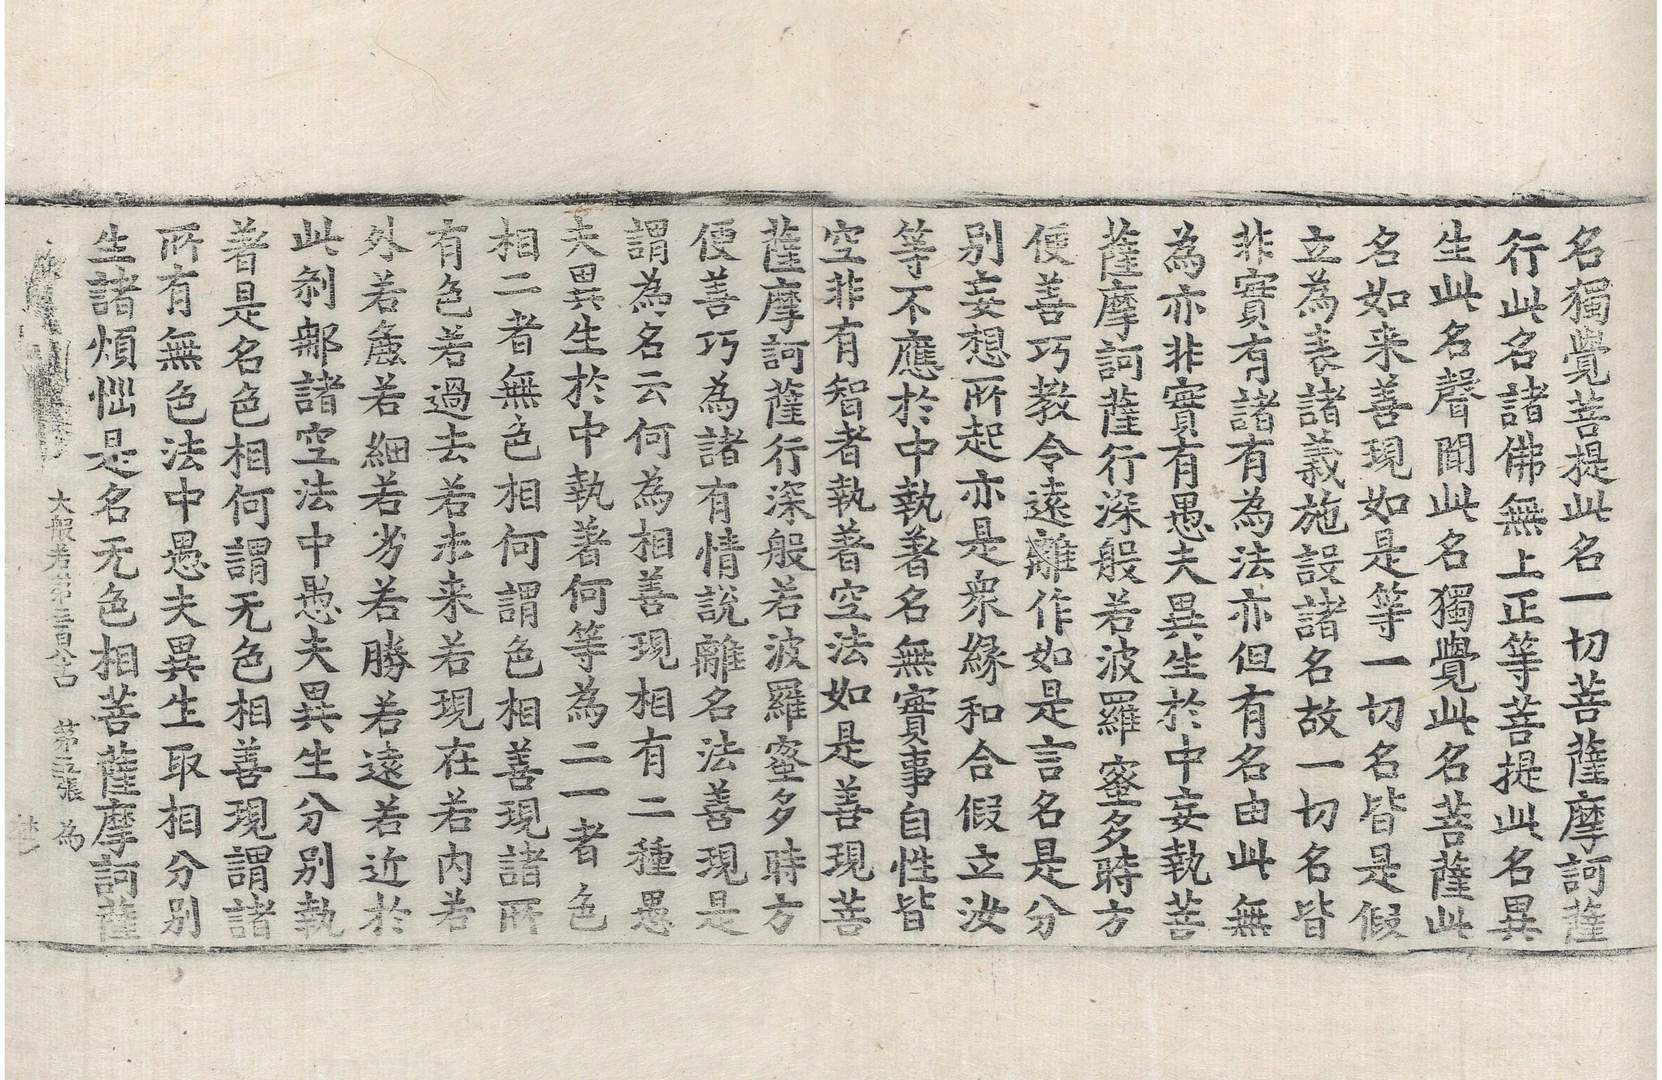 名獨覺菩提此名一切菩薩摩訶薩
行此名諸佛無上正等菩提此名異
生此名聲聞此名獨覺此名菩薩此
名如来善現如是等一切名皆是假
立為表諸義施設諸名故一切名皆
非實有諸有為法亦但有名由此無
為亦非實有愚夫異生於中妄執菩
薩摩訶薩行深般若波羅蜜多時方
便善巧教令遠離作如是言名是分
别妄想所起亦是衆緣和合假立汝
等不應於中執著名無實事自性皆
空非有智者執著空法如是善現菩
薩摩訶薩行深般若波羅蜜多時方
便善巧為諸有情說離名法善現是
謂為名云何為相善現相有二種愚
夫異生於中執著何等為二一者色
相二者無色相何謂色相善現諸所
有色若過去若未来若現在若内若
外若麁若細若劣若勝若遠若近於
此刹那諸空法中愚夫異生分别執
著是名色相何謂无色相善現謂諸
所有無色法中愚夫異生取相分别
生諸煩惱是名无色相菩薩摩訶薩
大般若第 第五張 為